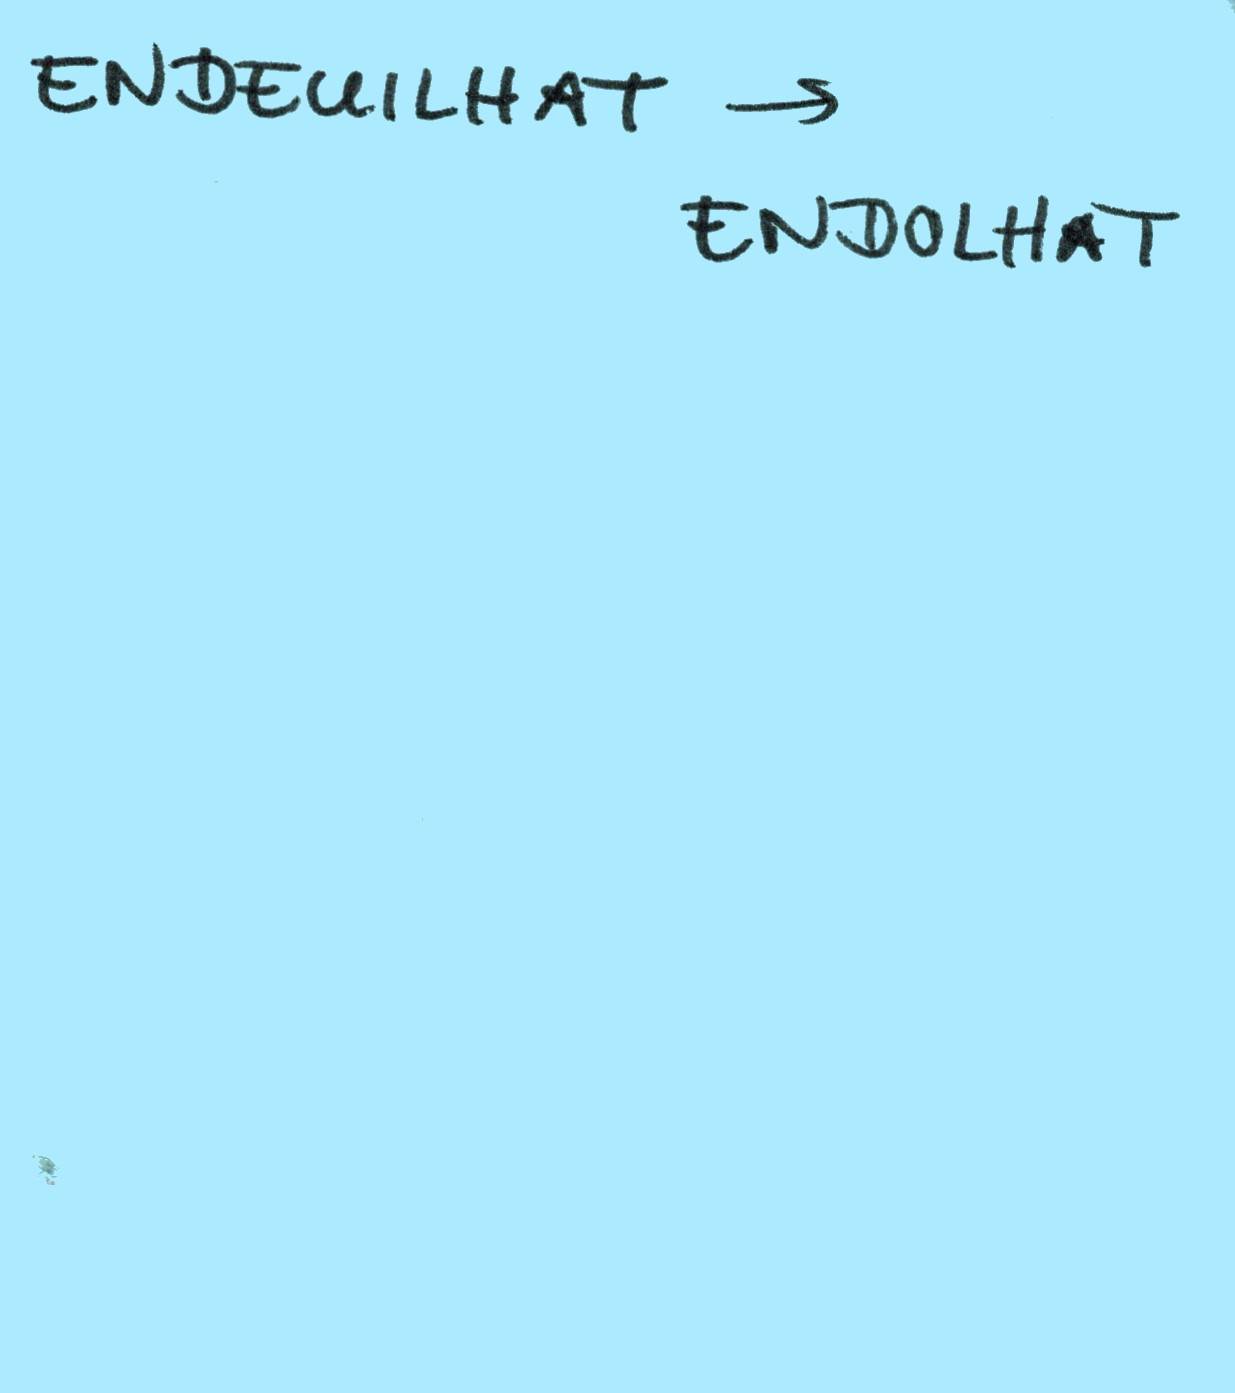 ENDEUILHAT →
ENDOLHAT